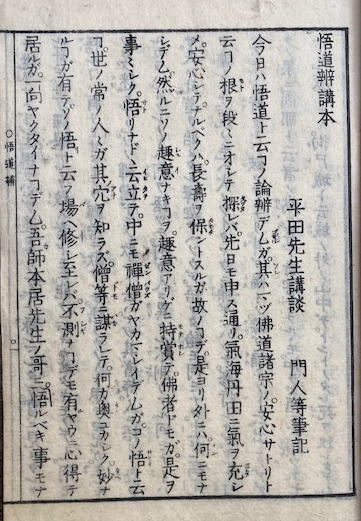 悟道辨講本
平田先生講談　門人等筆記
今日ハ悟道ト云ヿノ論辨デムガ其ハマヅ佛道諸宗ノ安心サトリト
云ヿノ根ヲ段々ニオシテ探レバ先日モ申ス通リ氣海丹田ニ氣ヲ充シ
メ安心シテ居ルベクハ長壽ヲ保ントスルガ故ノヿデ是ヨリ外ニハ何ニモナ
シデム然ルニソノ趣意ナキヿヲ趣意アリゲニ持賞テ佛者ドモガ是ヲ
事ミシク悟リナドヽ云立テ中ニモ禪僧ガヤカマシイデムガコノ悟ト云
ヿ世ノ常ノ人ミガ其穴ヲ知ラズ僧等ニ謀ラレテ何カ奥ユカシク妙ナ
ルヿガ有テソノ悟ト云フ場ヘ修シ至レバ不測ナヿデモ有ヤウニ心得テ
居ルガ一向ヤクタイナヿデム吾師本居先生ノ哥ニ悟ルベキ事モナ
○悟道辨